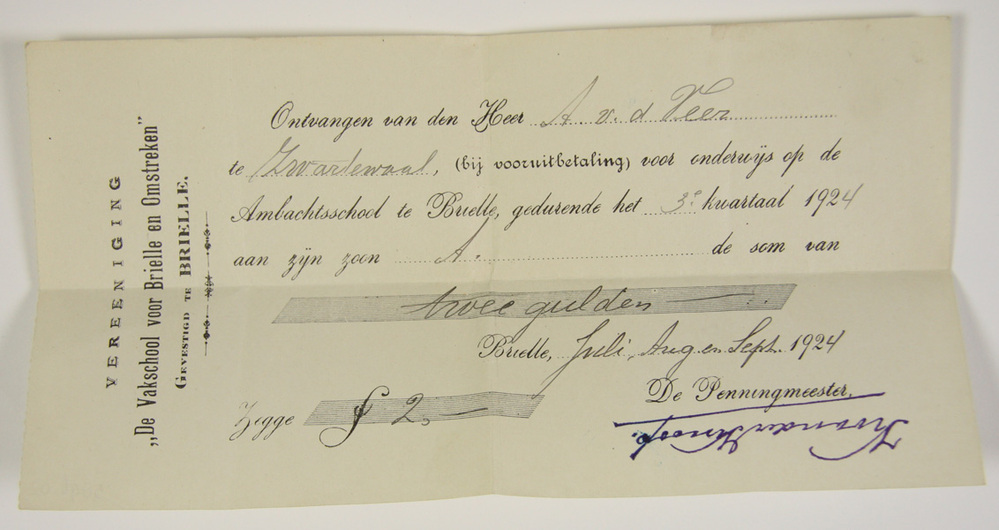 VEREENIGING
„De Vakschool voor Brielle en Omstreken”
GEVESTIGD TE BRIELLE.
Ontvangen van den Heer A v. d Veer
te Zwartewaal, (bij vooruitbetaling) voor onderwijs op de
Ambachtsschool te Brielle, gedurende het 3e kwartaal 1924
aan zijn zoon A. de som van
twee gulden
Brielle, Juli, Aug. en Sept. 1924
De Penningmeester,
Zegge f 2,—